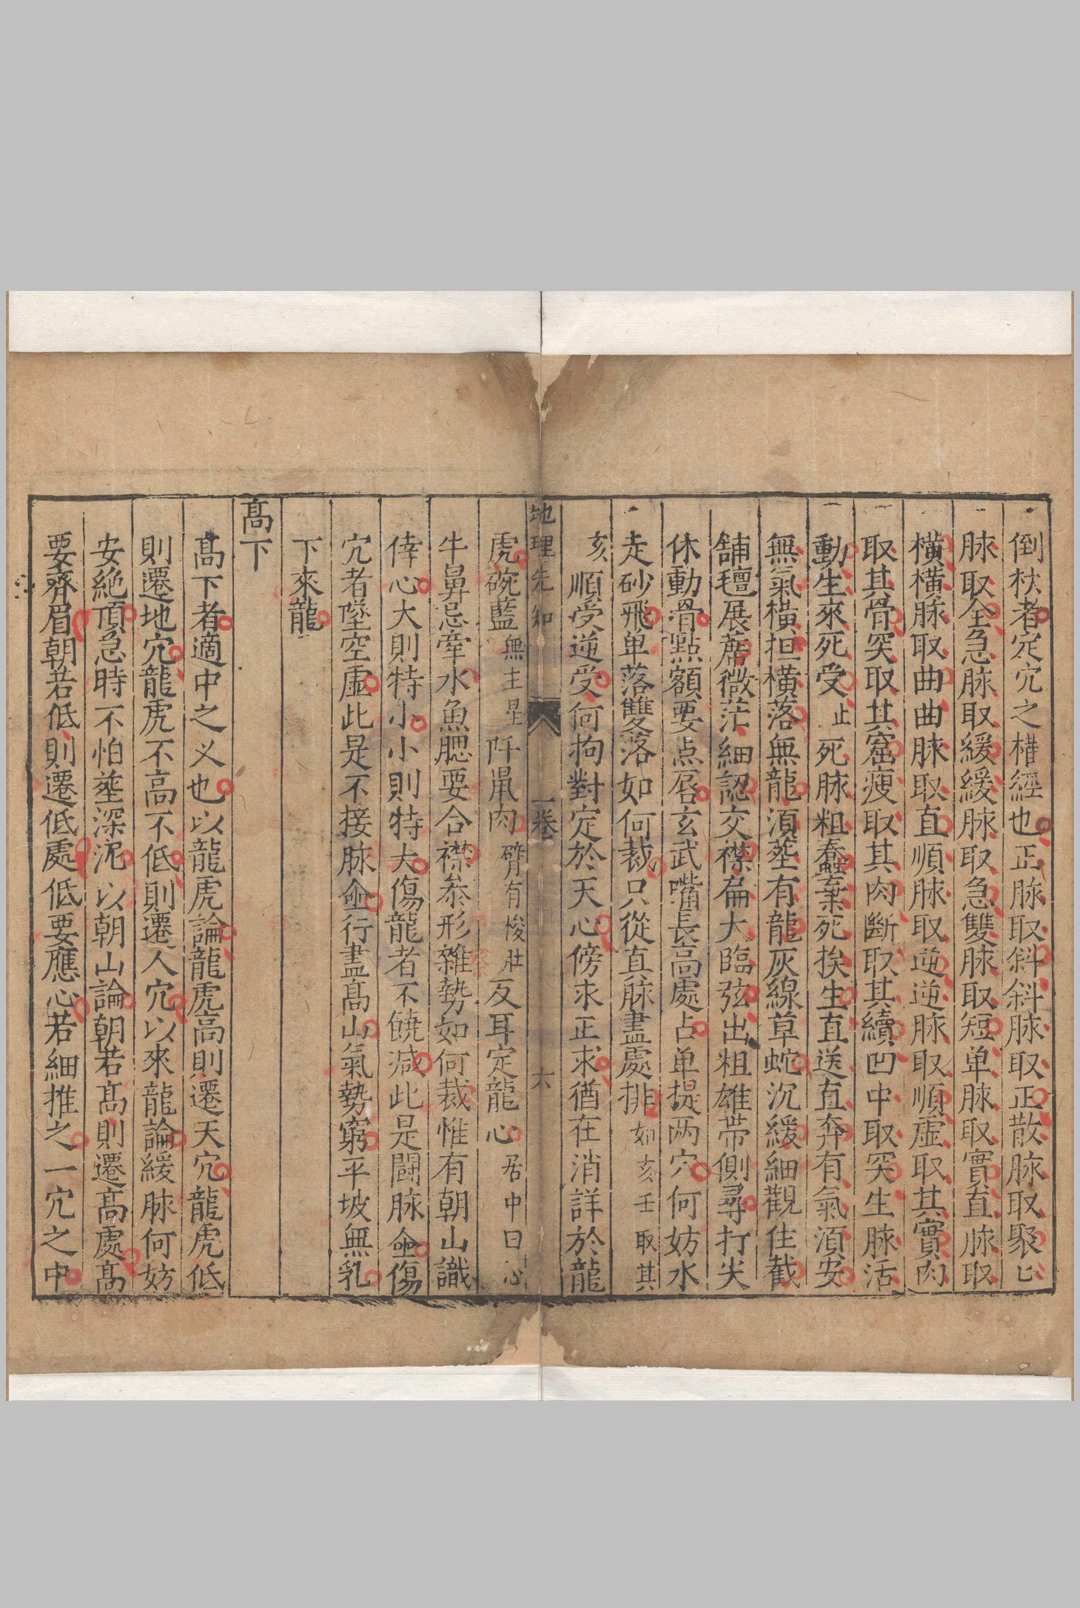 倒杖者定穴之權經也正脉取斜斜脉取正散脉取聚
脉取全急脉取緩緩脉取急雙脉取短单脉取實直脉取
橫橫脉取曲曲脉取直順脉取逆逆脉取順虛取其實肉
取其骨突取其窟瘦取其肉斷取其續凹中取突生脉活
動生來死受止死脉粗蠢棄死挨生直送直奔有氣湏安
無氣橫担橫落無龍湏塟有龍灰線草蛇沉緩細觀住截
舖氊展蓆微茫細認交襟扁大臨弦出粗雄帶側尋打尖
休動骨點額要点唇玄武嘴長高處占单提两穴何妨水
走砂飛单落雙落如何裁只從真脉盡處排如亥壬取其
亥順受逆受何拘對定於天心傍求正求猶在消詳於龍
地理先知 一卷 六
虎碗藍無主星阡鼠肉臂有梭肚反耳定龍心居中曰心
牛鼻忌牽水魚腮要合襟叅形雜勢如何裁惟有朝山識
倖心大則特小小則特大傷龍者不饒减此是闘脉侖傷
穴者墜空虛此是不接脉侖行盡髙山氣勢窮平坡無乳
下來龍
髙下
髙下者適中之义也以龍虎論龍虎高則遷天穴龍虎低
則遷地穴龍虎不高不低則遷人穴以來龍論緩脉何妨
安絶頂急時不怕塟深泥以朝山論朝若髙則遷髙處髙
要齊眉朝若低則遷低處低要應心若細推之一穴之中